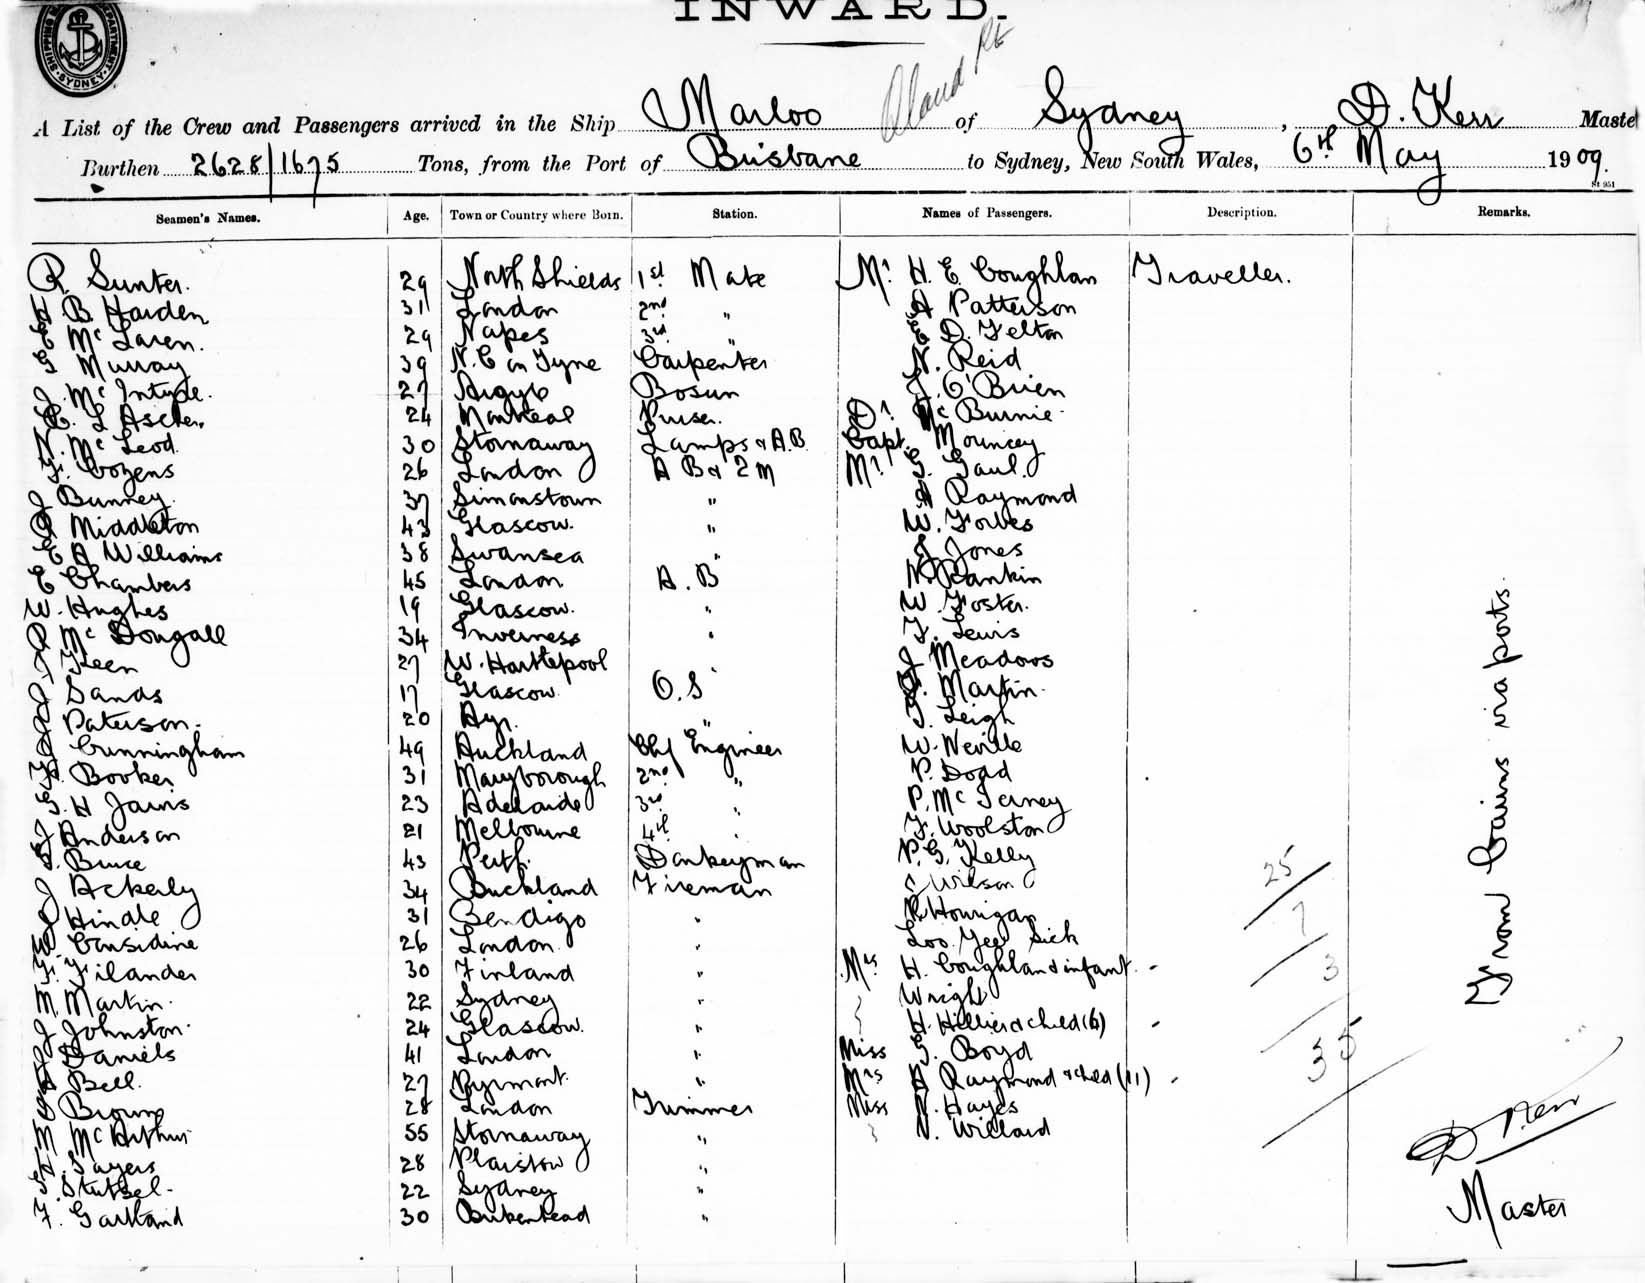 INWARD.
SHIPPING DEPARTMENT SYDNEY
A List of the Crew and Passengers arrived in the Ship Marloo of Sydney, D. Kerr Maste
Burthen 2628/1675 Tons, from the Port of Brisbane to Sydney, New South Wales, 6th May 1909.
St 951
Seamen's Names. Age. Town or Country where Born. Station. Names of Passengers. Description. Remarks.
R. Sunter. 29 North Shields 1st Mate Mr. H. E. Coughlan Traveller.
B. Harden 31 London 2nd " A Patterson
McLaren. 29 Napes 3rd " D. Felton
Murray 39 N. C on Tyne Carpenter N. Reid
McIntyre. 27 Argyle Bosun J. O'Brien
C. L Ascher. 24 Montreal Purser. Dr. McBurnie
McLeod. 30 Stornaway Lamps & A.B. Capt. Mouncey
Cozens 26 London A B & 2 M Mr. G. Gaul.
Bunney. 37 Simonstown " A Raymond
Middleton 43 Glascow. " W. Forbes
E A Williams 38 Swansea " J Jones
C Chambers 45 London A. B N. Rankin
W. Hughes 19 Glascow. " W. Foster.
McDougall 34 Inverness " F. Lewis
Keen 27 W. Hartlepool " J Meadows
Sands 17 Glascow. O.S Martin.
Paterson. 20 Ayr. " Leigh
Cunningham 49 Auckland Chf Engineer W. Neville
Booker 31 Maryborough 2nd " P. Dodd
H Jarvis 23 Adelaide 3rd " P. McTerney
Anderson 21 Melbourne 4th " F. Woolston
Bruce 43 Perth. Donkeyman P. G. Kelly
Ackerly 34 Buckland Fireman Wilson
Hindle 31 Bendigo " Hourigan
Considine 26 London. " Loo Yee Sick
Filander 30 Finland " Mrs H. Coughlan & infant -
M. Martin. 22 Sydney " Wright
J Johnston. 24 Glascow. " H. Hillier & child (6) -
Daniels 41 London " Miss G. Boyd
Bell. 27 Pyrmont. " Mrs A Raymond & child (11) -
Brown 28 London Trimmer Miss N. Hayes
McArthur 55 Stornaway " N. Willard
Sayers 28 Plaistow "
Stutsel. 22 Sydney "
F. Gartland 30 Birkenhead "
25
7
3
35
From Cairns via ports.
D Kerr
Master